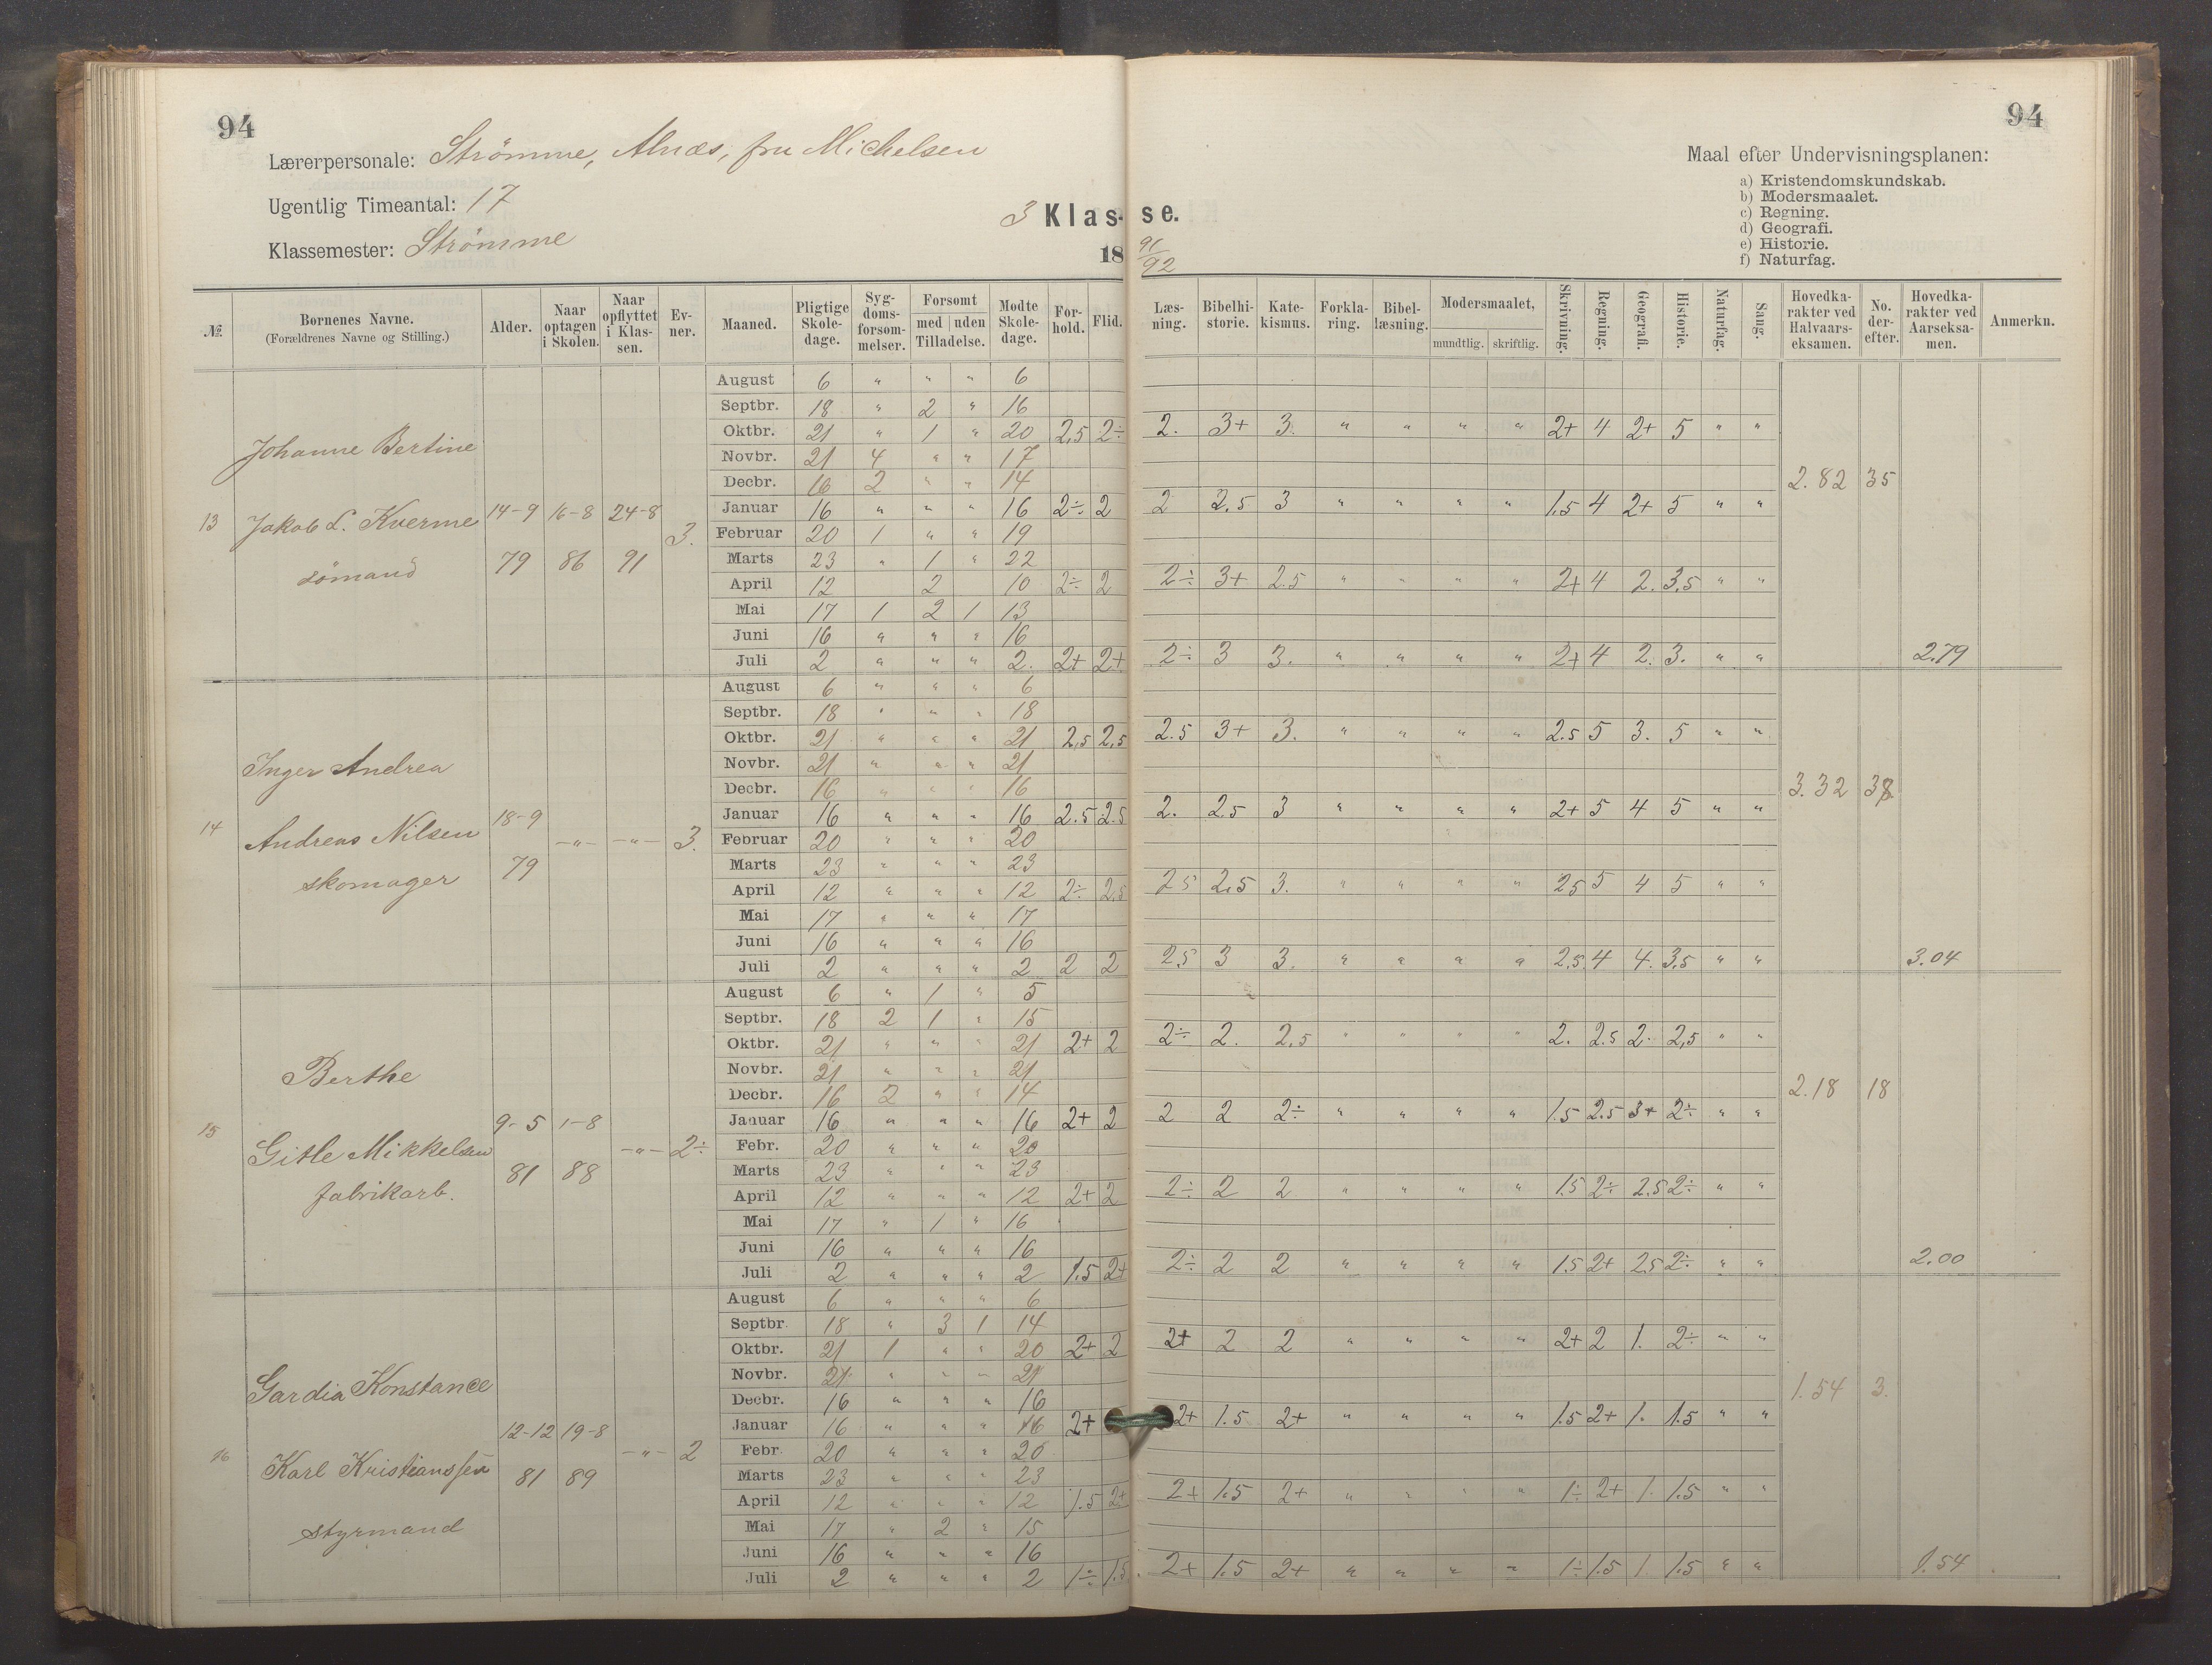 94
94
Lærerpersonale: Strömme, Alnæs, fru Michelsen
Ugentlig Timeantal: 17
Klassemester: Strömme
3 Klasse.
18 91/92
Maal efter Undervisningsplanen:
a) Kristendomskundskab.
b) Modersmaalet.
c) Regning.
d) Geografi.
e) Historie.
f) Naturfag.
№ Børnenes Navne. (Forældrenes Navne og Stilling.) Alder. Naar optagen i Skolen. Naar opflyttet i Klassen. Evner. Maaned. Pligtige Skoledage. Sygdomsforsømmelser. Forsømt med uden Tilladelse. Mødte Skoledage. Forhold. Flid. Læsning. Bibelhistorie. Katekismus. Forklaring. Bibellæsning. Modersmaalet, mundtlig. skriftlig. Skrivning. Regning. Geografi. Historie. Naturfag. Sang. Hovedkarakter ved Halvaarseksamen. No. derefter. Hovedkarakter ved Aarseksamen. Anmerkn.
13 Johanne Bertine
Jakob L. Kverme
sömand
14-9 79 16-8 86 24-8 91 3.
August 6 " " " 6
Septbr. 18 " 2 " 16
Oktbr. 21 " 1 " 20 2,5 2÷ 2. 3+ 3. " " " " 2+ 4 2+ 5 " "
Novbr. 21 4 " " 17
Decbr. 16 2 " " 14 2.82 35
Januar 16 " " " 16 2÷ 2 2 2.5 3 " " " " 1.5 4 2+ 5 " "
Februar 20 1 " " 19
Marts 23 " 1 " 22
April 12 2 10 2÷ 2 2÷ 3+ 2.5 " " " " 2+ 4 2. 3,5 " "
Mai 17 1 2 1 13
Juni 16 " " " 16
Juli 2 " " " 2. 2+ 2+ 2÷ 3 3. " " " " 2+ 4 2. 3. " " 2.79
14 Inger Andrea
Andreas Nilsen
skomager
18-9 79 -"- -"- 3.
August 6 " " " 6
Septbr. 18 " " " 18
Oktbr. 21 " " " 21 2,5 2,5 2.5 3+ 3. " " " " 2.5 5 3. 5 " "
Novbr. 21 " " " 21
Decbr. 16 " " " 16 3.32 38
Januar 16 " " " 16 2.5 2.5 2. 2.5 3 " " " " 2+ 5 4 5 " "
Februar 20 " " " 20
Marts 23 " " " 23
April 12 " " " 12 2÷ 2,5 25 2,5 3. " " " " 25 5 4 5 " "
Mai 17 " " " 17
Juni 16 " " " 16
Juli 2 " " " 2 2 2 25 3 3. " " " " 2,5 4 4. 3,5 " " 3.04
15 Berthe
Gitle Mikkelsen
fabrikarb.
9-5 81 1-8 88 -"- 2÷
August 6 " 1 " 5
Septbr. 18 2 1 " 15
Oktbr. 21 " " " 21 2+ 2 2÷ 2. 2,5 " " " " 2. 2.5 2. 2,5 " "
Novbr. 21 " " " 21
Decbr. 16 2 " " 14 2.18 18
Januar 16 " " " 16 2+ 2 2 2 2÷ " " " " 1.5 2.5 3+ 2÷ " "
Febr. 20 " " " 20
Marts 23 " " " 23
April 12 " " " 12 2+ 2 2÷ 2 2 " " " " 1.5 2÷ 2.5 2÷ " "
Mai 17 " 1 " 16
Juni 16 " " " 16
Juli 2 " " " 2 1.5 2+ 2÷ 2 2 " " " " 1.5 2+ 25 2÷ " " 2.00
16 Gardia Konstance
Karl Kristianssen
styrmand
12-12 81 19-8 89 -"- 2
August 6 " " " 6
Septbr. 18 " 3 1 14
Oktbr. 21 1 " " 20 2+ 2 2+ 2 2 " " " " 2+ 2 1. 2÷ " "
Novbr. 21 " " " 21
Decbr. 16 " " " 16 1.54 3.
Januar 16 " " " 16 2+ 2+ 1.5 2+ " " " " 1.5 2+ 1. 1.5 " "
Febr. 20 " " " 20
Marts 23 " " " 23
April 12 " " " 12 1.5 2+ 2+ 1.5 2+ " " " " 1÷ 2+ 1. 1.5 " "
Mai 17 " 2 " 15
Juni 16 " " " 16
Juli 2 " " " 2 1÷ 1.5 2+ 1.5 2+ " " " " 1÷ 1.5 1 1.5 " " 1.54